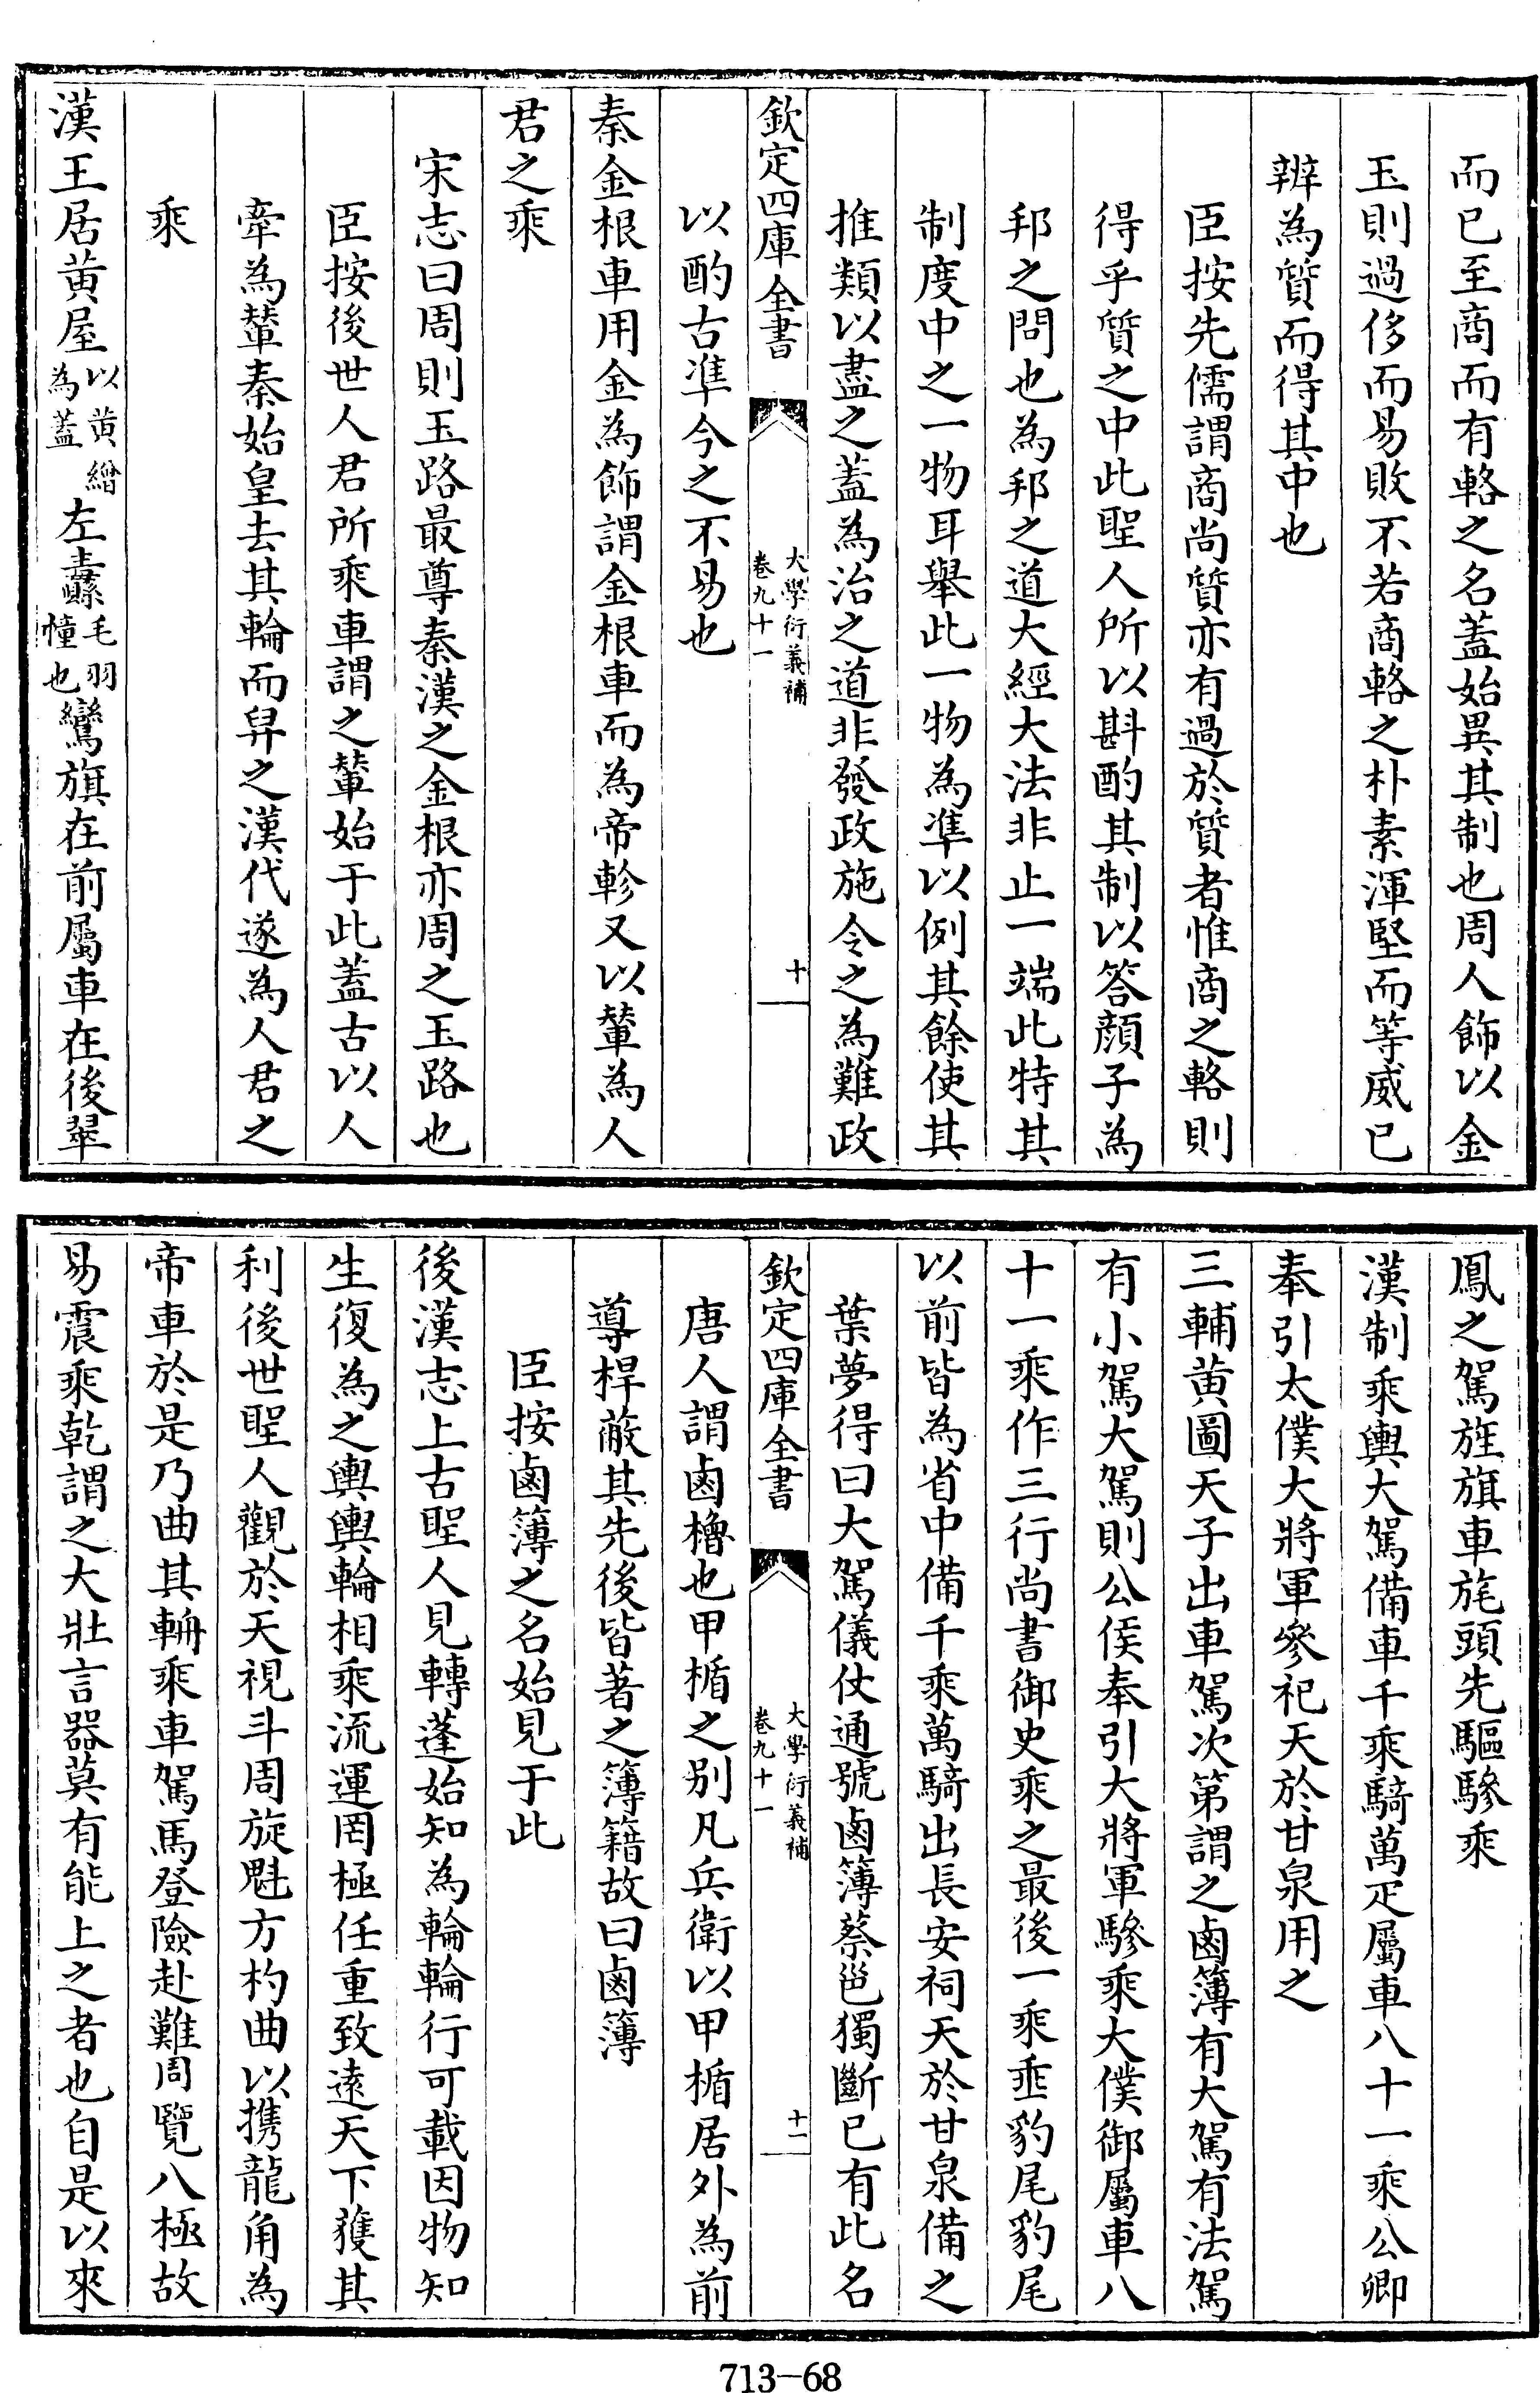 而已至商而有輅之名蓋始異其制也周人飾以金
玉則過侈而易敗不若商輅之朴素渾堅而等威已
辨為質而得其中也
臣按先儒謂商尚質亦有過於質者惟商之輅則
得乎質之中此聖人所以斟酌其制以答顏子為
邦之問也為邦之道大經大法非止一端此特其
制度中之一物耳舉此一物為準以例其餘使其
推類以盡之蓋為治之道非發政施令之為難政
欽定四庫全書
大學衍義補
卷九十一
十
以酌古準今之不易也
秦金根車用金為飾謂金根車而為帝軫又以輦為人
君之乘
宋志曰周則玉路最尊秦漢之金根亦周之玉路也
臣按後世人君所乘車謂之輦始于此蓋古以人
牽為輦秦始皇去其輪而舁之漢代遂為人君之
乘
漢王居黃屋以黃繒為蓋左纛毛羽幢也鸞旗在前屬車在後翠
鳳之駕旌旗車旄頭先驅驂乘
漢制乘輿大駕備車千乘騎萬疋屬車八十一乘公卿
奉引太僕大將軍參祀天於甘泉用之
三輔黃圖天子出車駕次第謂之鹵簿有大駕有法駕
有小駕大駕則公侯奉引大將軍驂乘大僕御屬車八
十一乘作三行尚書御史乘之最後一乘垂豹尾豹尾
以前皆為省中備千乘萬騎出長安祠天於甘泉備之
葉夢得曰大駕儀仗通號鹵簿蔡邕獨斷已有此名
欽定四庫全書
大學衍義補
卷九十一
十一
唐人謂鹵櫓也甲楯之別凡兵衛以甲楯居外為前
導桿蔽其先後皆著之簿籍故曰鹵簿
臣按鹵簿之名始見于此
後漢志上古聖人見轉蓬始知為輪輪行可載因物知
生復為之輿輿輪相乘流運罔極任重致遠天下獲其
利後世聖人觀於天視斗周旋魁方杓曲以攜龍角為
帝車於是乃曲其輈乘車駕馬登險赴難周覽八極故
易震乘乾謂之大壯言器莫有能上之者也自是以來
713-68